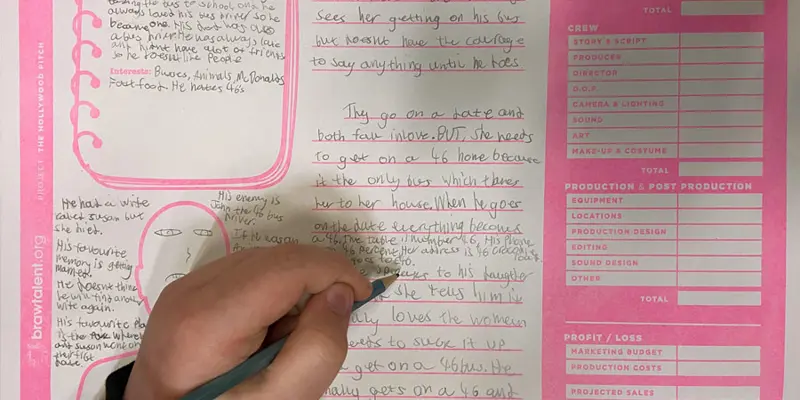 taking the bus to school and he
always loved his bus driver so he
became one. His dad was also
a bus driver. He was always late
and didnt have alot of friends
so he doesnt like People
Interests: Buses, Animals, McDonalds
Fast food. He hates 46's
He had a wife
called susan but
she died.
His favourite
memory is getting
married.
He doesnt think
he will find another
wife again.
His favourite Pla
is the where
and susan went on
their first
date.
His enemy is
John the 46 bus
driver.
If he was an
sees her getting on his bus
but doesnt have the courage
to say anything until he does
Thy go on a date and
both fall inlove. BUT, she needs
to get on a 46 home because
it the only bus which takes
her to her house. When he goes
on the date everything becomes
a 46. The table is number 46, His Phone
46 percent, Her address is 46 crocodile
to his daughter
she tells him if
loves the women
needs to suck it up
get on a 46 bus. He
finally gets on a 46 and
PROJECT: THE HOLLYWOOD PITCH
brawtalent.org
TOTAL
CREW
STORY & SCRIPT
PRODUCER
DIRECTOR
D.O.P.
CAMERA & LIGHTING
SOUND
ART
MAKE-UP & COSTUME
TOTAL
PRODUCTION & POST PRODUCTION
EQUIPMENT
LOCATIONS
PRODUCTION DESIGN
EDITING
SOUND DESIGN
OTHER
TOTAL
PROFIT / LOSS
MARKETING BUDGET
PRODUCTION COSTS
PROJECTED SALES